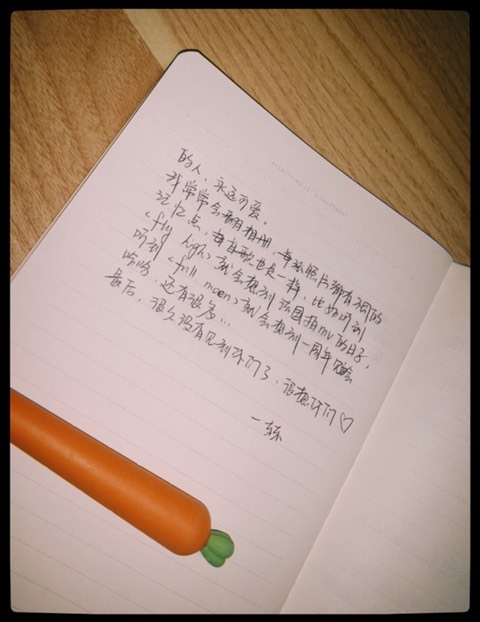 的人，永远可爱。
我常常会翻相册，每张照片都有不同的
记忆点，每首歌也是一样，比如听到
《fly high》就会想到法国拍mv的日子，
听到《full moon》就会想到一周年见面会
哈哈，还有很多...
最后，很久没有见到你们了，很想你们♡